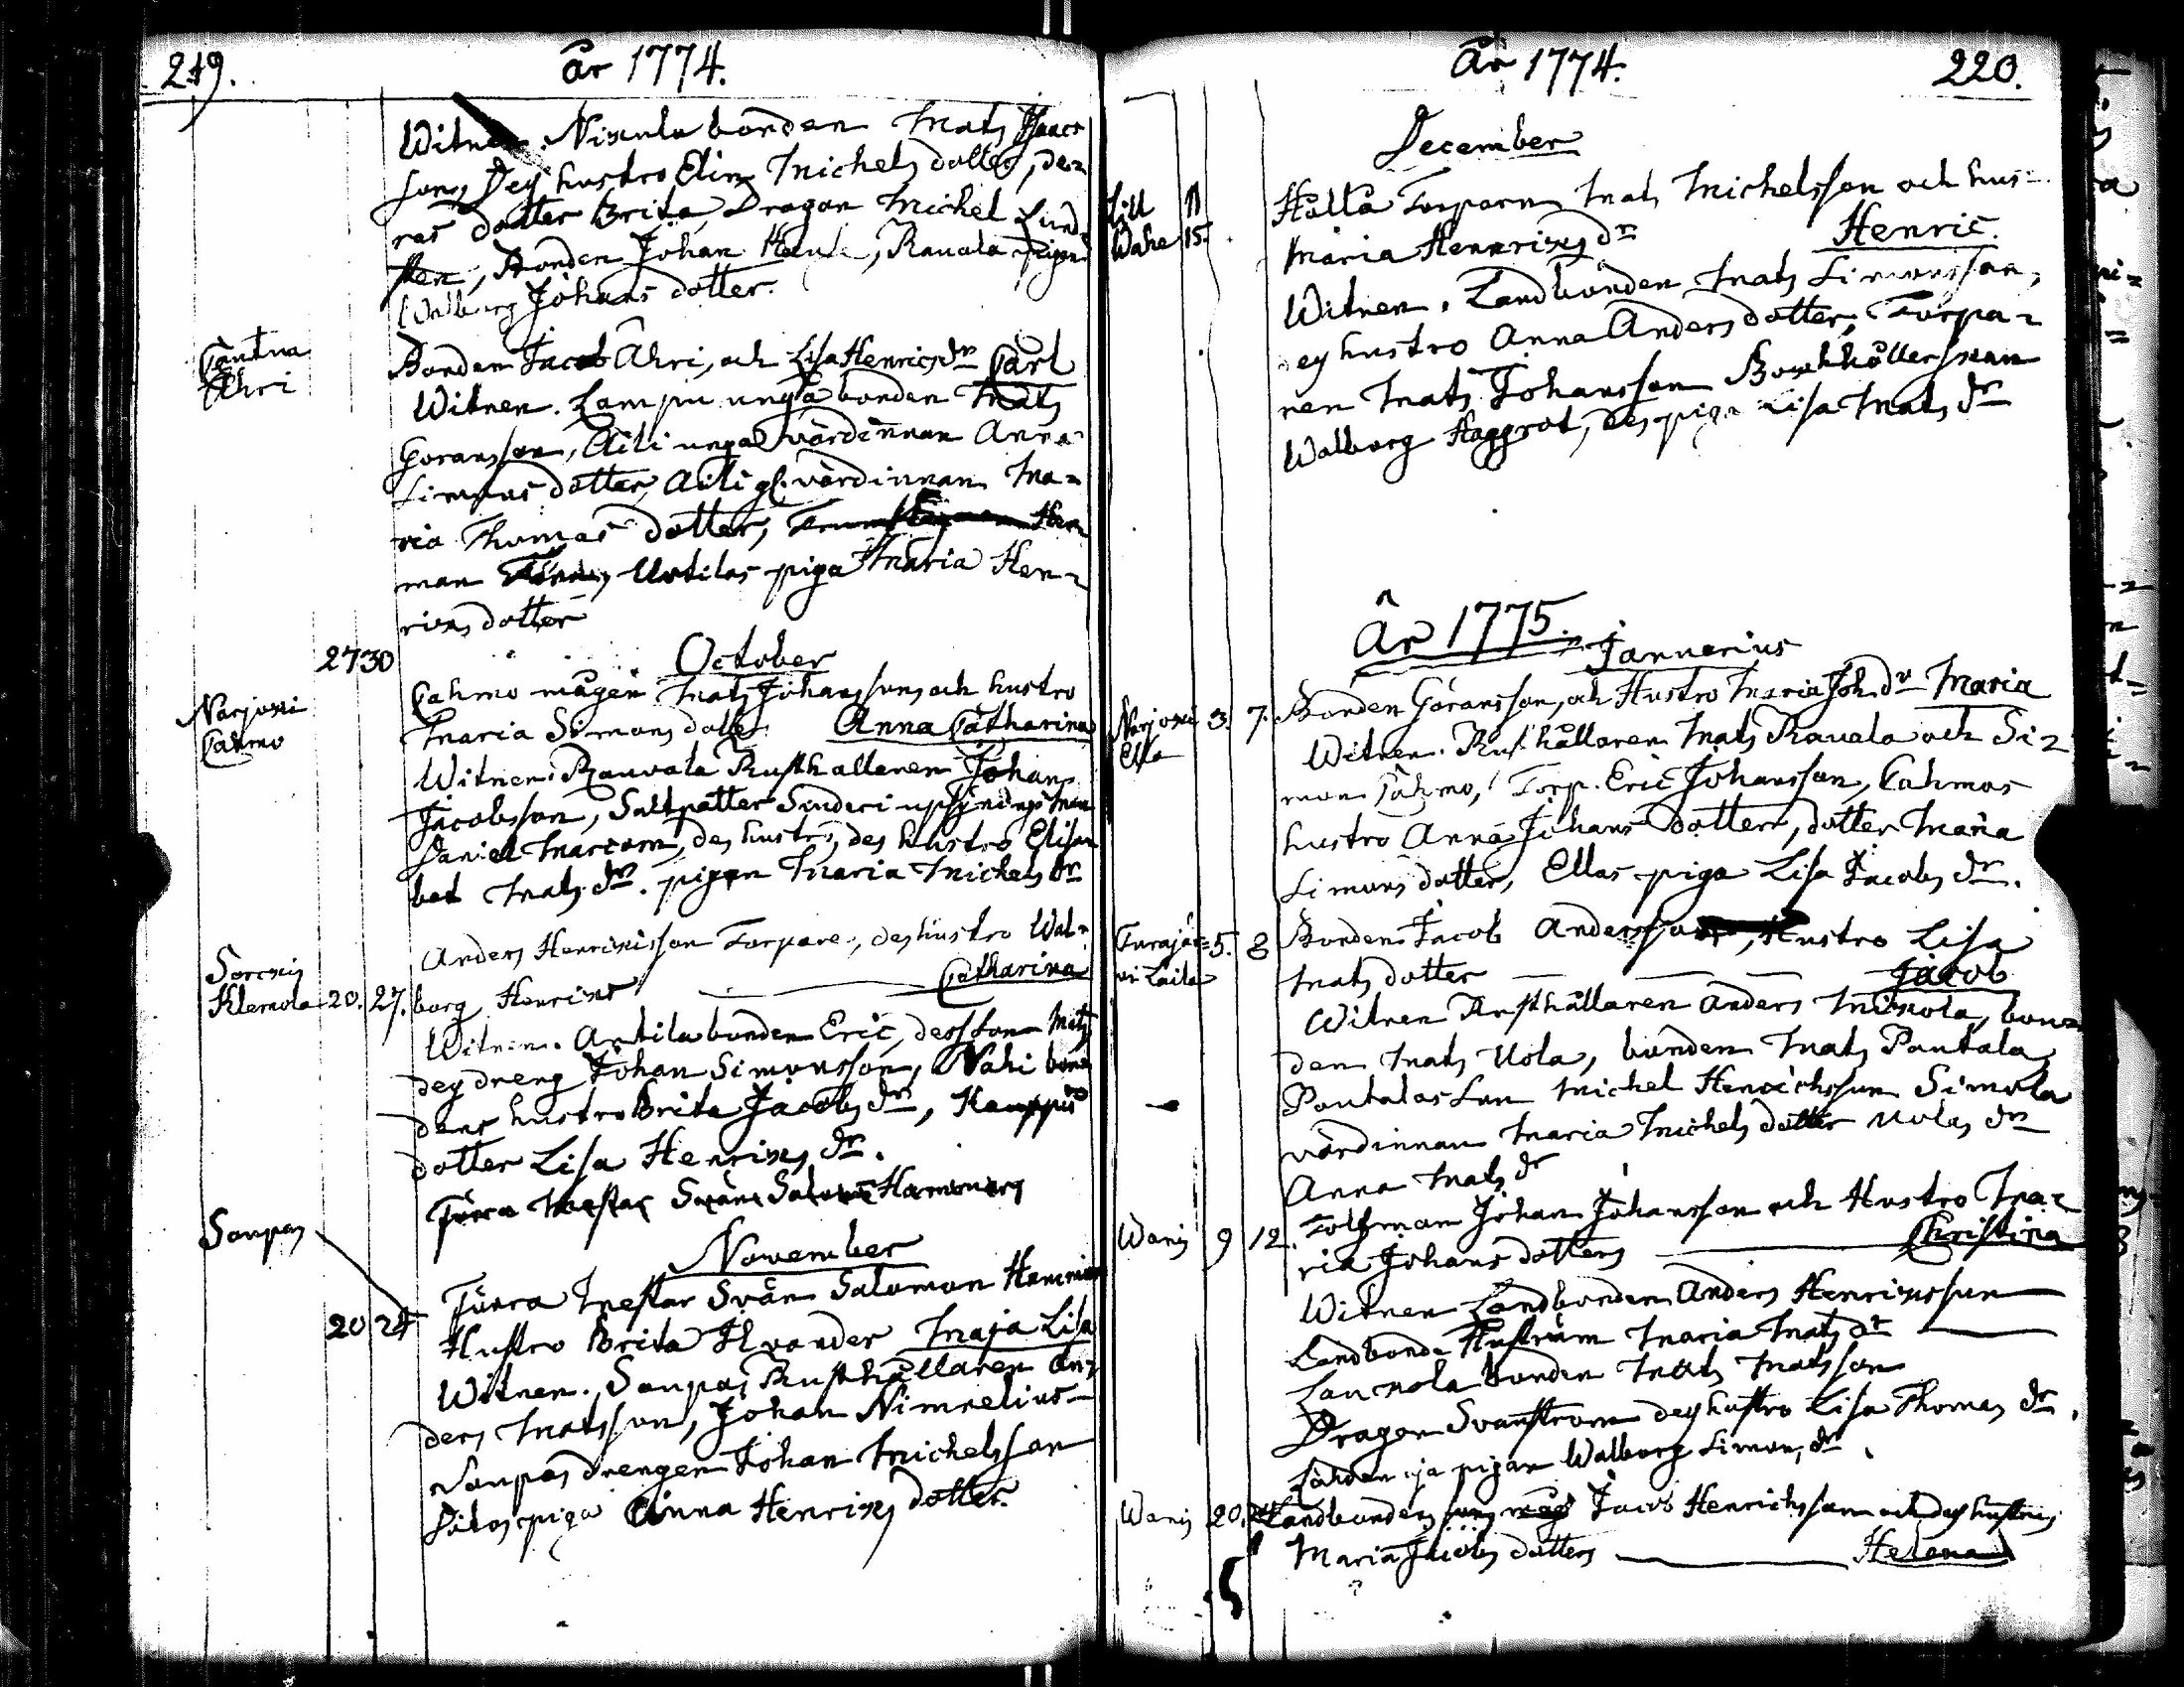 219.
År 1774.
Witnen. Nixula bonden Mats Isaacs
son, Des hustro Elin Michels dotter, de=
ras dotter Brita, Dragon Michel Lind
sten, Bonden Johan , Rauala pigan
Walborg Johans dotter.
Cantua
Ahri
Bonden Jacob Ahri, och Lisa Henrics dr Carl
Witnen. Lampu unga bonden Mats
Göransson, Aili unga värdinnan Anna
Simons dotter, Aili gl. värdinnan Ma=
ria Thomas dotter,
man Uotilas piga Maria Hen=
rics dotter
October
27 30
Narjoxi
Cahmo
Cahmo mågen Mats Johansson, och hustro
Maria Simons dotter Anna Catharina
Witnen. Rauvala Rusthallaren Johan
Jacobsson, Saltpetter Sinderi upsynings man
Daniel , des hustro, des hustro Elisa
bet Mats dr. pigan Maria Michels dr
Anders Henrixsson Torpare, des hustro Wal=
Klemola 20. 27. borg Henrics Catharina
Witnen. Antila bonden Eric, dess son Mats
des dreng Johan Simonsson, Nahi bon
dens hustro Brita Jacobs dr, Kauppis
dotter Lisa Henrixs dr.
Förra Mestar Svän Salomon
November
Sonpas
Förra Mestar Svän Salomon
20 24 Hustro Brita Maja Lisa
Witnen. Sonpas Rusthållaren An=
ders Matsson, Johan Nimnelius
Sonpas drengen Johan Michelsson
piga Anna Henrixs dotter.
År 1774.
220.
December
Lill
Wahe 11 15.
Torparn Mats Michelsson och hus=
Maria Henrixs dr Henric.
Witnen. Landbonden Mats Simonsson,
des hustro Anna Anders dotter, Torpa=
ren Mats Johansson
Walborg Haggrot, des piga Lisa Mats dr
År 1775.
Januarius
Narjoxi
Ella 3. 7. Bonden Göransson, och Hustro Maria Joh. dr Maria
Witnen. Rusthållaren Mats Rauala och Si=
mon Cahmo, Torp. Eric Johansson, Cahmos
hustro Anna Johans dotter, dotter Maria
Simons dotter, Ellas piga Lisa Jacobs dr.
Turajär=
vi Laila 5. 8 Bonden Jacob Andersson, Hustro Lisa
Mats dotter Jacob
Witnen Rusthållaren Anders Mixola, bon=
den Mats Uola, bonden Mats Pantala
Pantalas son Michel Henrichsson Simola
värdinnan Maria Michels dotter Uolas dr
Anna Mats dr
Wanj 9 12. Tolfman Johan Johansson och Hustro Ma=
ria Johans dotters Christina
Witnen Landbonden Anders Henrixsson
Landbonde Hustrun Maria Mats dr
Laurola bonden Mats Matsson
Dragon Svanström des hustro Lisa Thomas dr.
pigan Walborg Simons dr.
Wanj 20. 24 Landbondens måg Jacob Henrichsson och des hustrus
Maria Jacobs dotters Helena